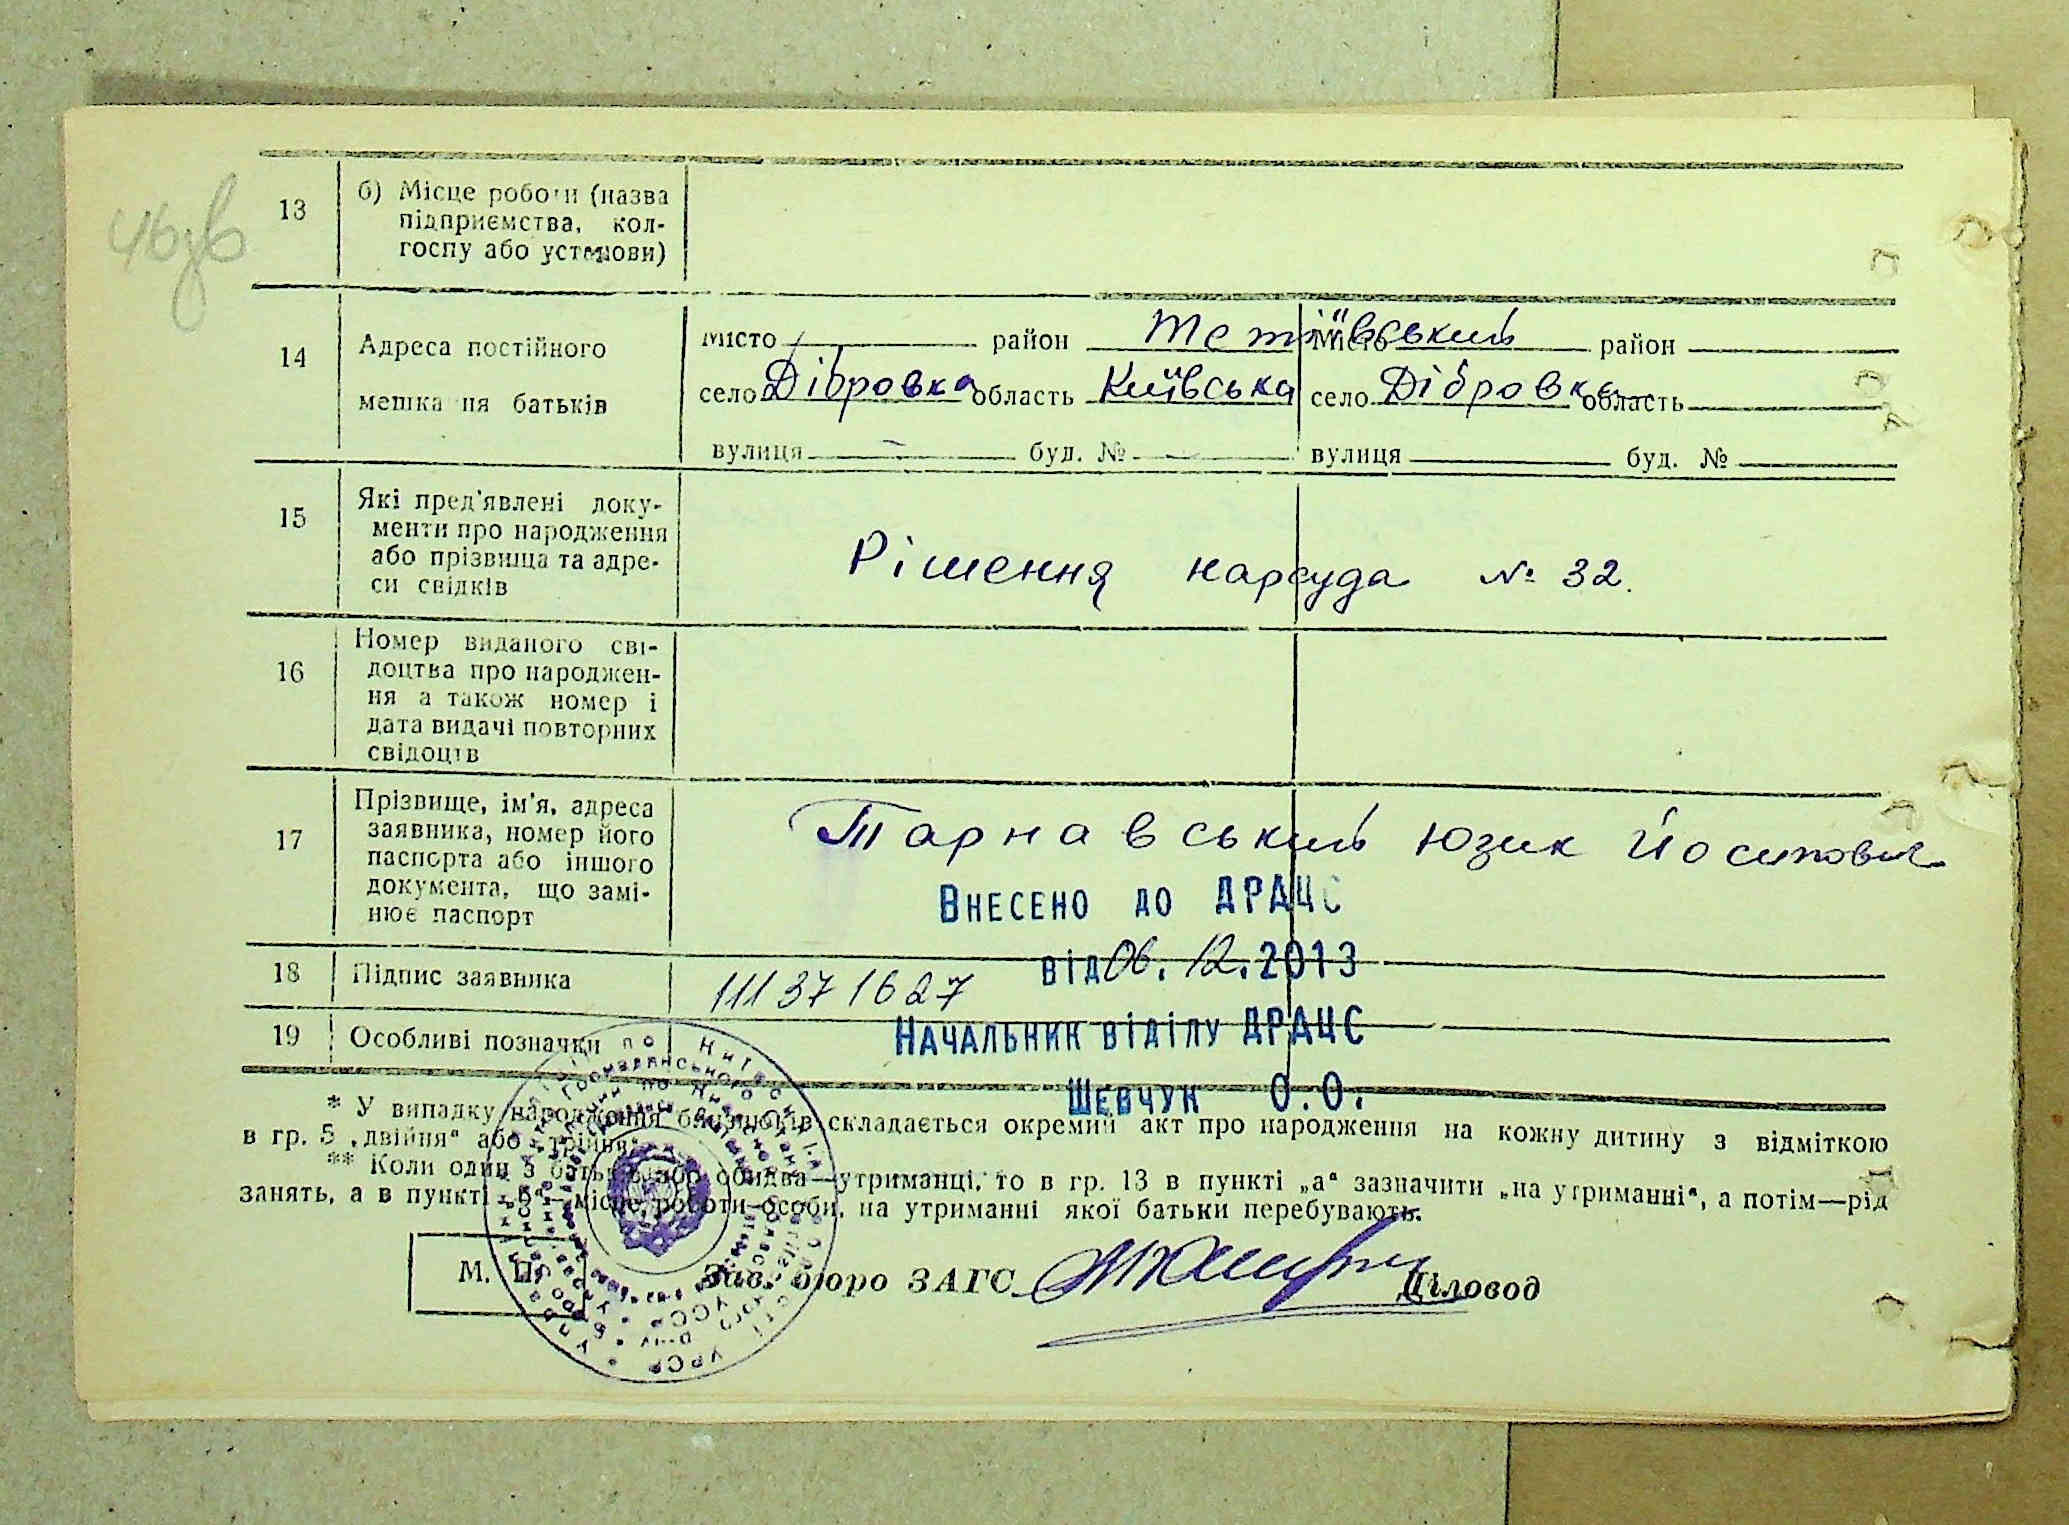 46зв
13
б) Місце роботи (назва
підприємства, кол-
госпу або установи)
14
Адреса постійного
мешкання батьків
місто район Тетіївський
село Дібровка область Київська
вулиця — буд. № —
місто район
село Дібровка область
вулиця буд. №
15
Які пред'явлені доку-
менти про народження
або прізвища та адре-
си свідків
Рішення нарсуда № 32.
16
Номер виданого сві-
доцтва про народжен-
ня а також номер і
дата видачі повторних
свідоцтв
17
Прізвище, ім'я, адреса
заявника, номер його
паспорта або іншого
документа, що замі-
нює паспорт
Тарнавський Юзик Йосипович
Внесено до ДРАЦС
18
Підпис заявника
11137 1627
від 06.12.2013
19
Особливі позначки
Начальник відділу ДРАЦС
Шевчук О.О.
* У випадку народження близнюків складається окремий акт про народження на кожну дитину з відміткою
в гр. 5 „двійня" або „трійня".
** Коли один з батьків або обидва—утриманці, то в гр. 13 в пункті „а" зазначити „на утриманні", а потім—рід
занять, а в пункті „б"—місце роботи особи, на утриманні якої батьки перебувають.
М. П. Зав. бюро ЗАГС Діловод